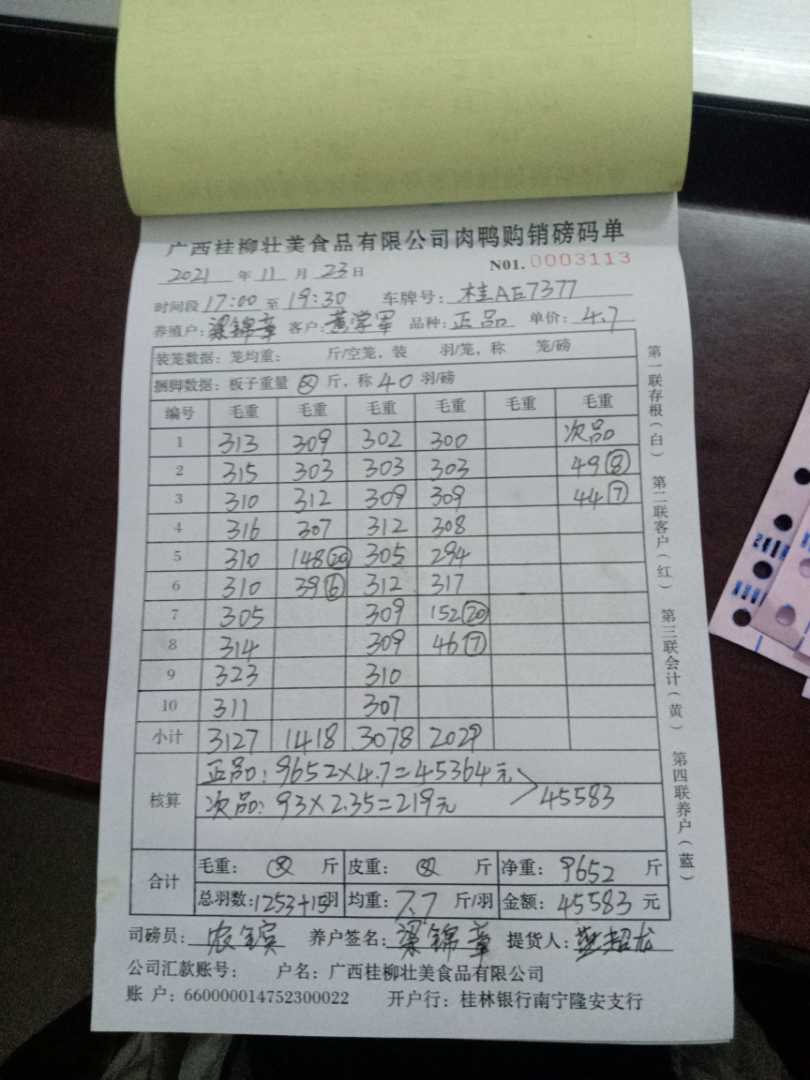 广西桂柳壮美食品有限公司肉鸭购销磅码单
2021 年 11 月 23 日 N01. 0003113
时间段 17:00 至 19:30 车牌号: 桂AE7377
养殖户: 梁锦章 客户: 黄学军 品种: 正品 单价: 4.7
装笼数据: 笼均重: 斤/空笼, 装 羽/笼, 称 笼/磅
捆脚数据: 板子重量 斤, 称 40 羽/磅
编号 毛重 毛重 毛重 毛重 毛重 毛重
1 313 309 302 300 次品
2 315 303 303 303 49⑧
3 310 312 309 309 44⑦
4 316 307 312 308
5 310 148⑳ 305 294
6 310 39⑥ 312 317
7 305 309 152⑳
8 314 309 46⑦
9 323 310
10 311 307
小计 3127 1418 3078 2029
核算 正品: 9652×4.7=45364元
次品: 93×2.35=219元 45583
合计 毛重: 斤 皮重: 斤 净重: 9652 斤
总羽数: 1253+15羽 均重: 7.7 斤/羽 金额: 45583 元
司磅员: 养户签名: 梁锦章 提货人:
公司汇款账号: 户名: 广西桂柳壮美食品有限公司
账 户: 660000014752300022 开户行: 桂林银行南宁隆安支行
第一联存根(白) 第二联客户(红) 第三联会计(黄) 第四联养户(蓝)